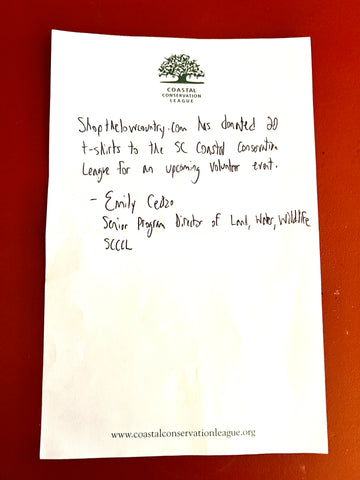 COASTAL
CONSERVATION
LEAGUE
Shopthelowcountry.com has donated 20
t-shirts to the SC Coastal Conservation
League for an upcoming volunteer event.
- Emily Cedzo
Senior Program Director of Land, Water, Wildlife
SCCCL
www.coastalconservationleague.org